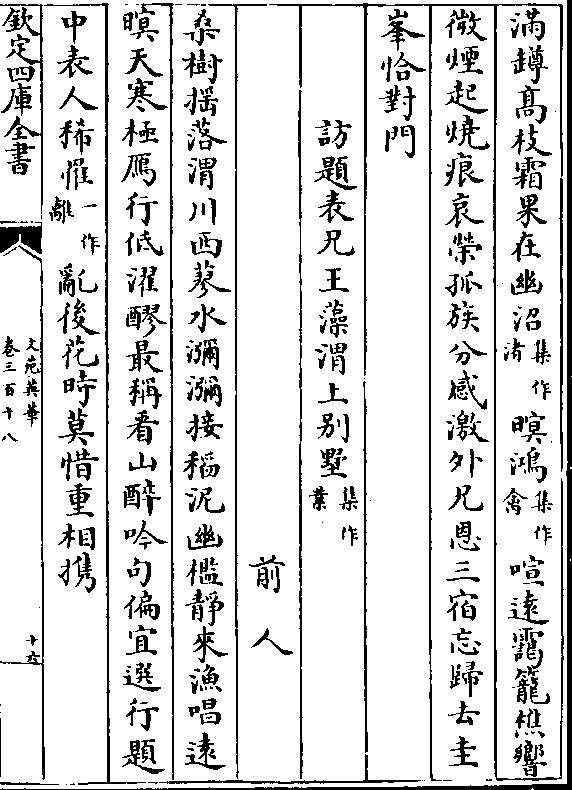 滿罇髙枝霜果在幽沼集作渚暝鴻集作禽喧逺靄籠樵響
微煙起燒痕哀榮孤族分感激外兄恩三宿忘歸去圭
峯恰對門
訪題表兄王藻渭上别墅集作業
前人
桑樹揺落渭川西蓼水瀰瀰接稻泥幽檻靜來漁唱逺
暝天寒極鴈行低濯醪最稱看山醉吟句偏宜選行題
中表人稀惟一作離亂後花時莫惜重相擕
欽定四庫全書
文苑英華
卷三百十八
十六